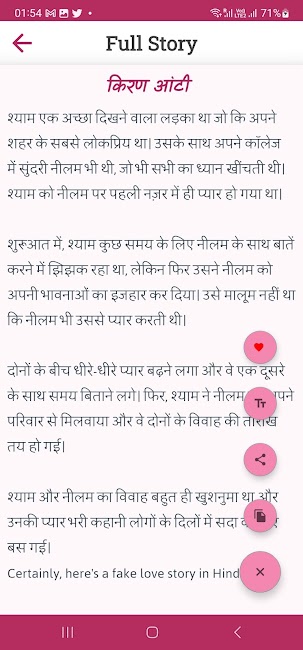 01:54
71%
Full Story
किरण आंटी
श्याम एक अच्छा दिखने वाला लड़का था जो कि अपने
शहर के सबसे लोकप्रिय था। उसके साथ अपने कॉलेज
में सुंदरी नीलम भी थी, जो भी सभी का ध्यान खींचती थी।
श्याम को नीलम पर पहली नज़र में ही प्यार हो गया था।
शुरूआत में, श्याम कुछ समय के लिए नीलम के साथ बातें
करने में झिझक रहा था, लेकिन फिर उसने नीलम को
अपनी भावनाओं का इजहार कर दिया। उसे मालूम नहीं था
कि नीलम भी उससे प्यार करती थी।
दोनों के बीच धीरे-धीरे प्यार बढ़ने लगा और वे एक दूसरे
के साथ समय बिताने लगे। फिर, श्याम ने नीलम
परिवार से मिलवाया और वे दोनों के विवाह की तारीख
तय हो गई।
श्याम और नीलम का विवाह बहुत ही खुशनुमा था और
उनकी प्यार भरी कहानी लोगों के दिलों में सदा
बस गई।
Certainly, here's a fake love story in
Tт